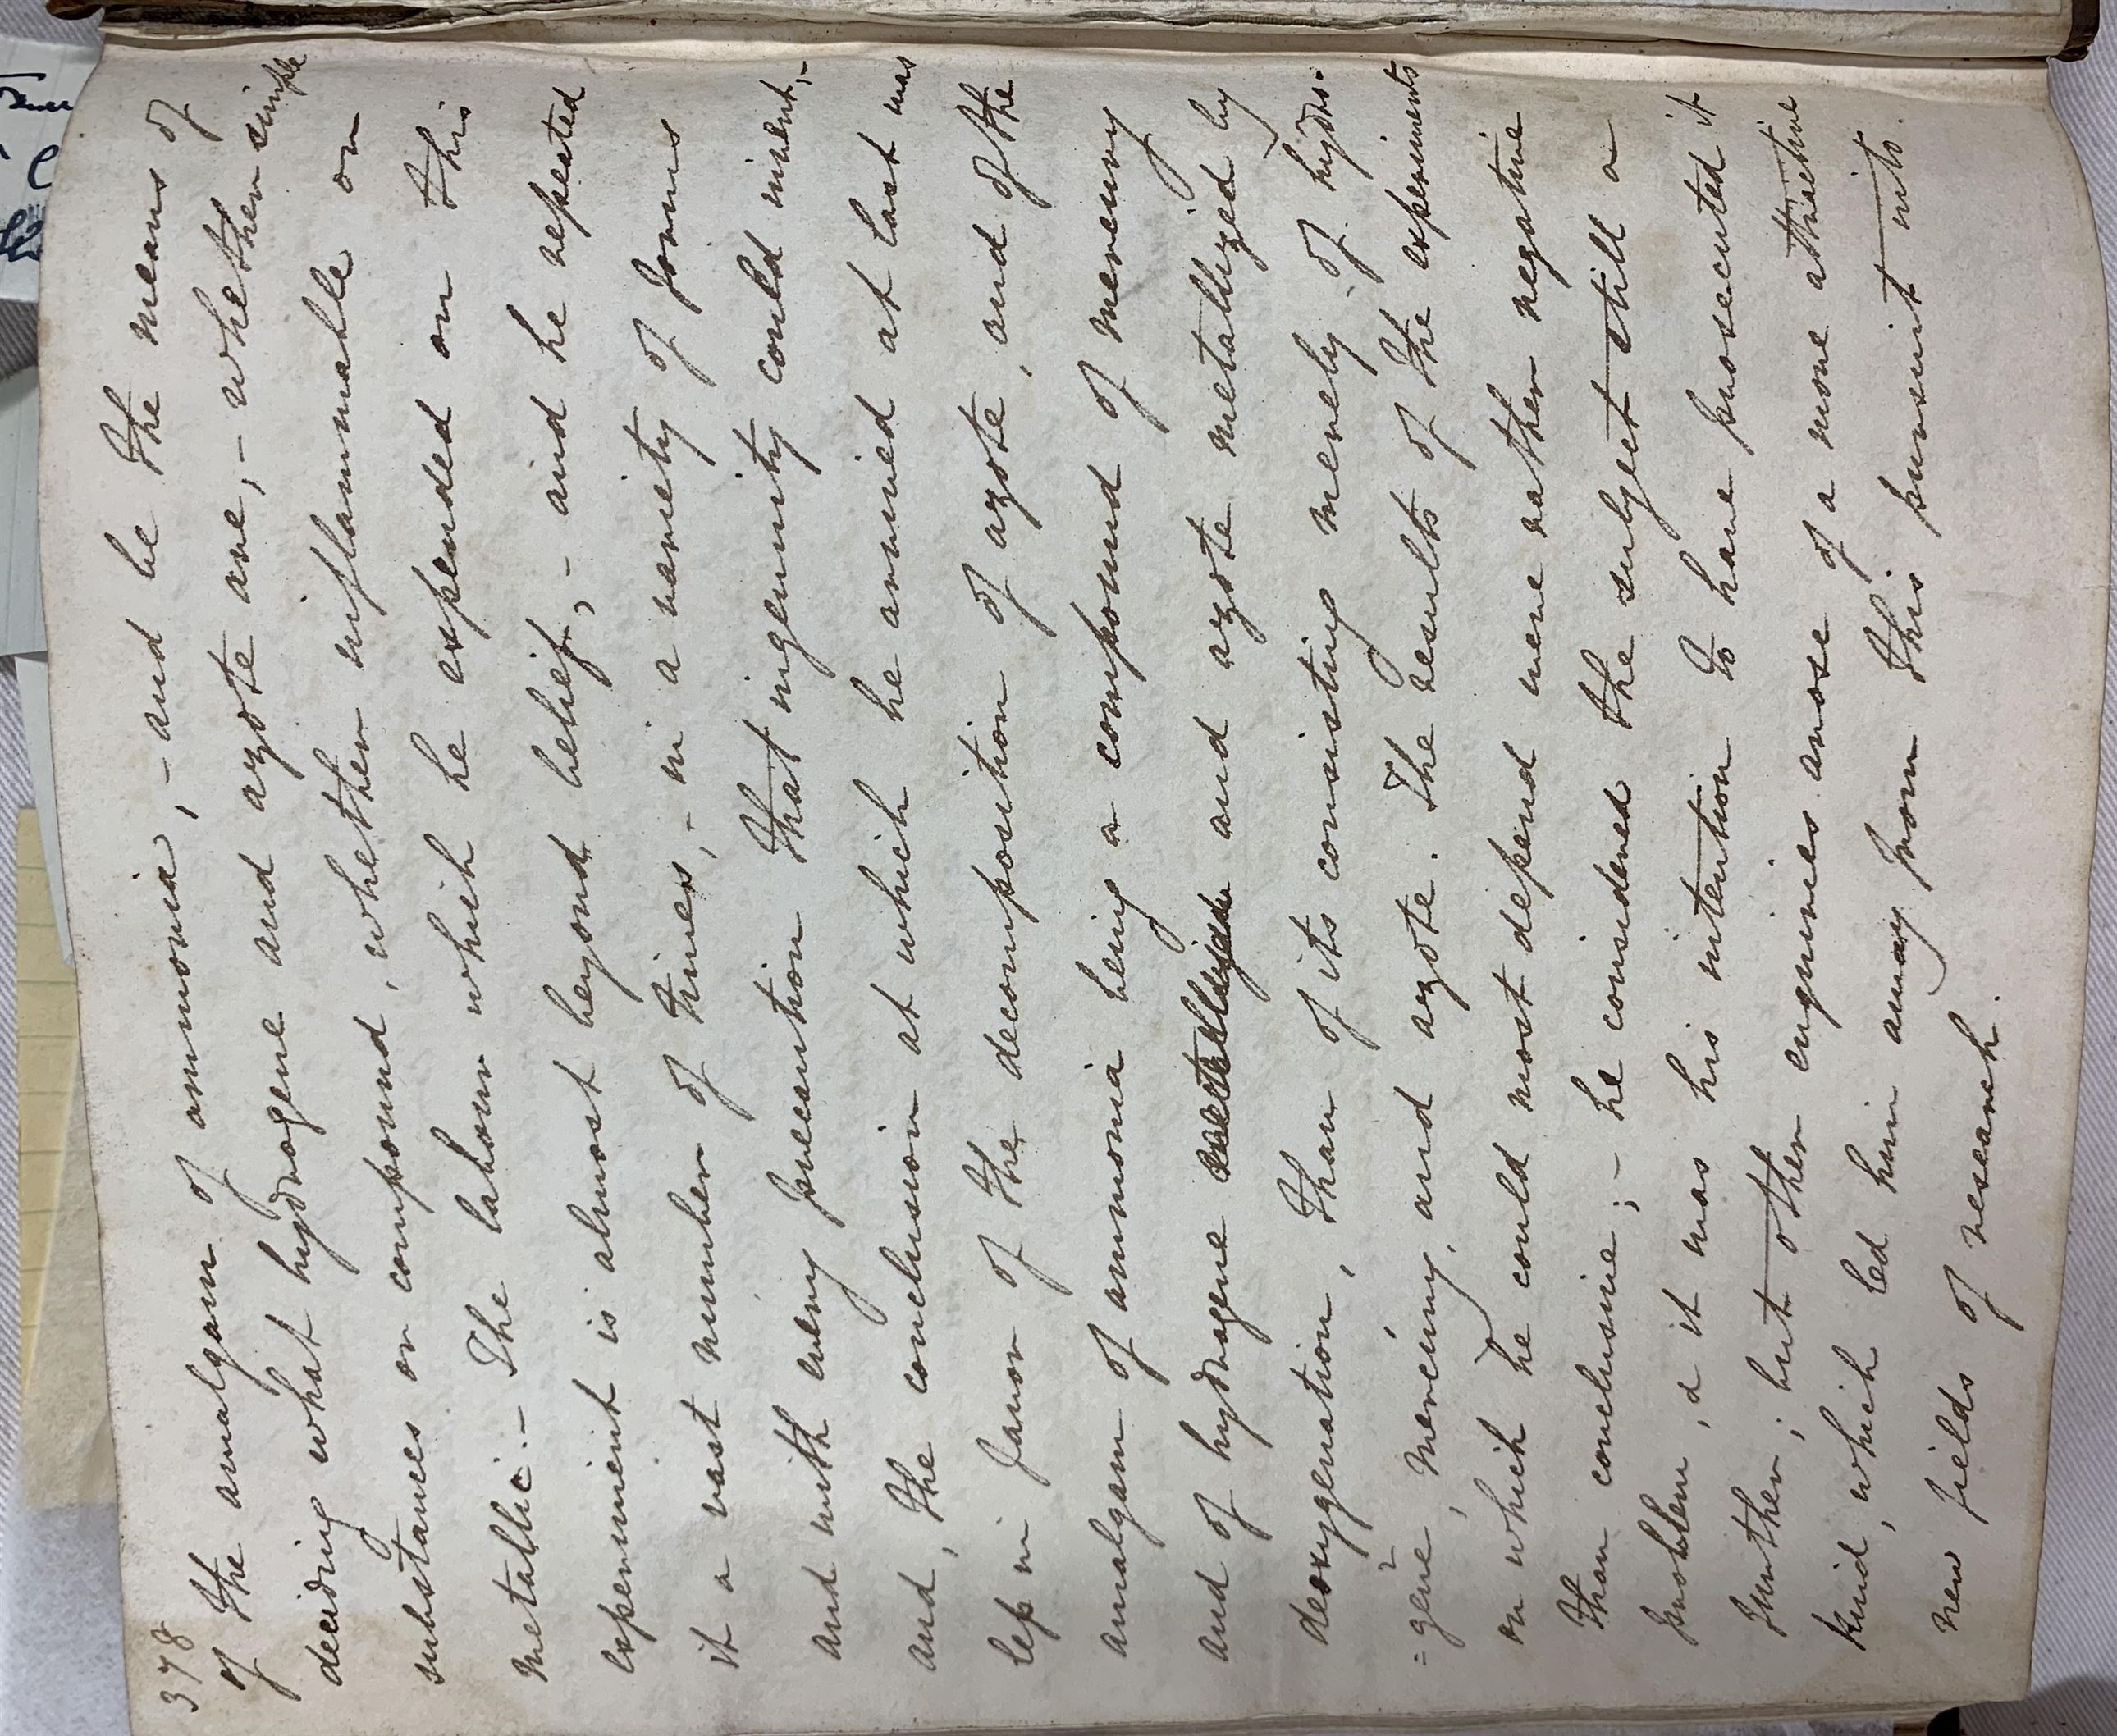 378
of the amalgam of ammonia, - and be the means of
deciding what hydrogene and azote are, - whether simple
substances or compound, whether inflammable or
metallic. - The labour which he expended on this
experiment is almost beyond belief; - and he repeated
it a vast number of times, - in a variety of forms
and with every precaution that ingenuity could invent, -
and, the conclusion at which he arrived at last was
less in favor of the decomposition of azote, and of the
amalgam of ammonia being a compound of mercury
and of hydrogene and azote metallized by
deoxygenation, than of its consisting merely of hydro-
=gene, mercury, and azote. The results of the experiments
on which he could most depend were rather negative
than conclusive; - he considered the subject still a
problem, & it was his intention to have prosecuted it
further; but other enquiries arose of a more attractive
kind, which led him away from this pursuit into
new fields of research.